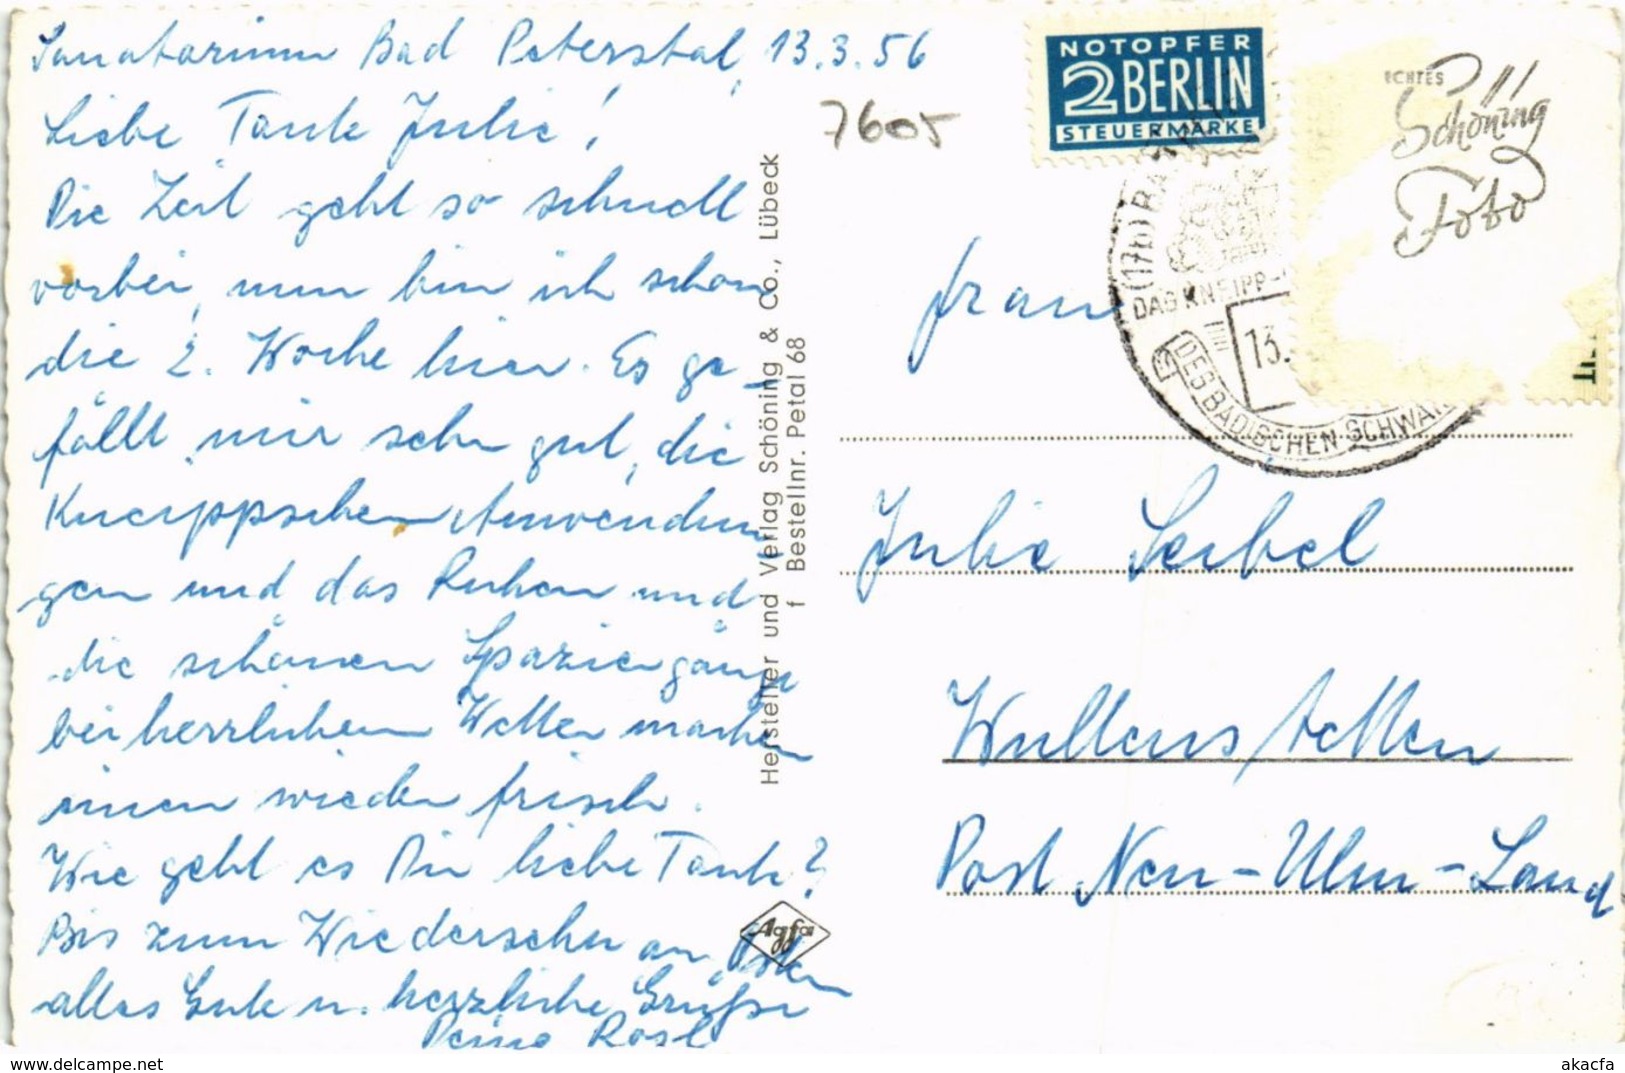 Sanatorium Bad Peterstal, 13.3.56
Liebe Tante Julie!
Die Zeit geht so schnell
vorbei, nun bin ich schon
die 2. Woche hier. Es ge-
fällt mir sehr gut, die
Kneippschen Anwendun
gen und das Ruhen und
die schönen Spaziergänge
bei herrlichem Wetter machen
einen wieder frisch.
Wie geht es Dir liebe Tante?
Bis zum Wiedersehn an Ostern
alles Gute u. herzliche Grüße
Deine Rosl
7605
Hersteller und Verlag Schöning & Co., Lübeck
f Bestellnr. Petal 68
Agfa
NOTOPFER
2 BERLIN
STEUERMARKE
ECHTES
Schöning
Foto
(17b) BAD
DAS KNEIPP-
13.
DES BADISCHEN SCHWAR
Frau
Julie Seibel
Wullenstetten
Post Neu-Ulm-Land
akacfa